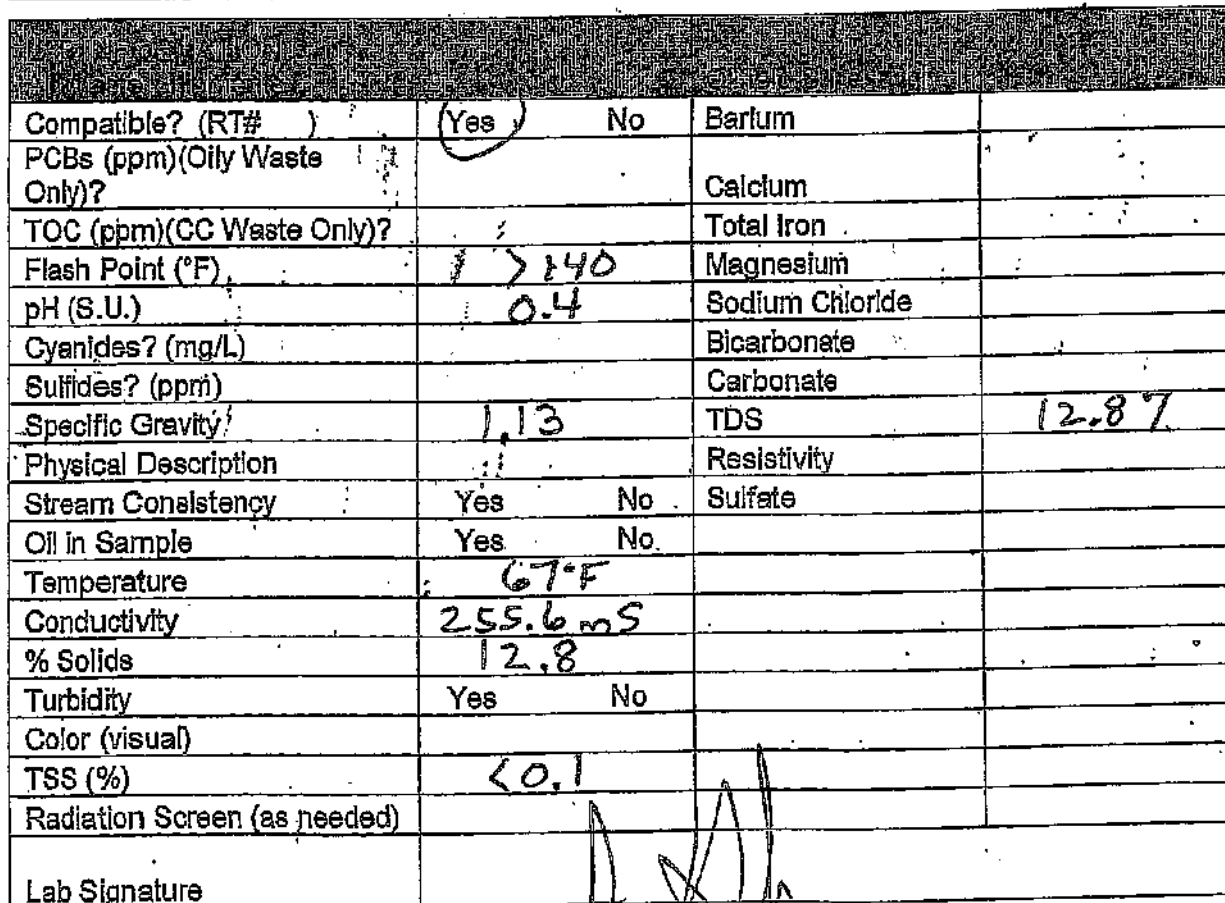 Compatible? (RT# ) Yes No Barium
PCBs (ppm)(Oily Waste
Only)? Calcium
TOC (ppm)(CC Waste Only)? Total Iron
Flash Point (°F) > 140 Magnesium
pH (S.U.) 0.4 Sodium Chloride
Cyanides? (mg/L) Bicarbonate
Sulfides? (ppm) Carbonate
Specific Gravity 1.13 TDS 12.87
Physical Description Resistivity
Stream Consistency Yes No Sulfate
Oil in Sample Yes No
Temperature 67°F
Conductivity 255.6 mS
% Solids 12.8
Turbidity Yes No
Color (visual)
TSS (%) <0.1
Radiation Screen (as needed)
Lab Signature